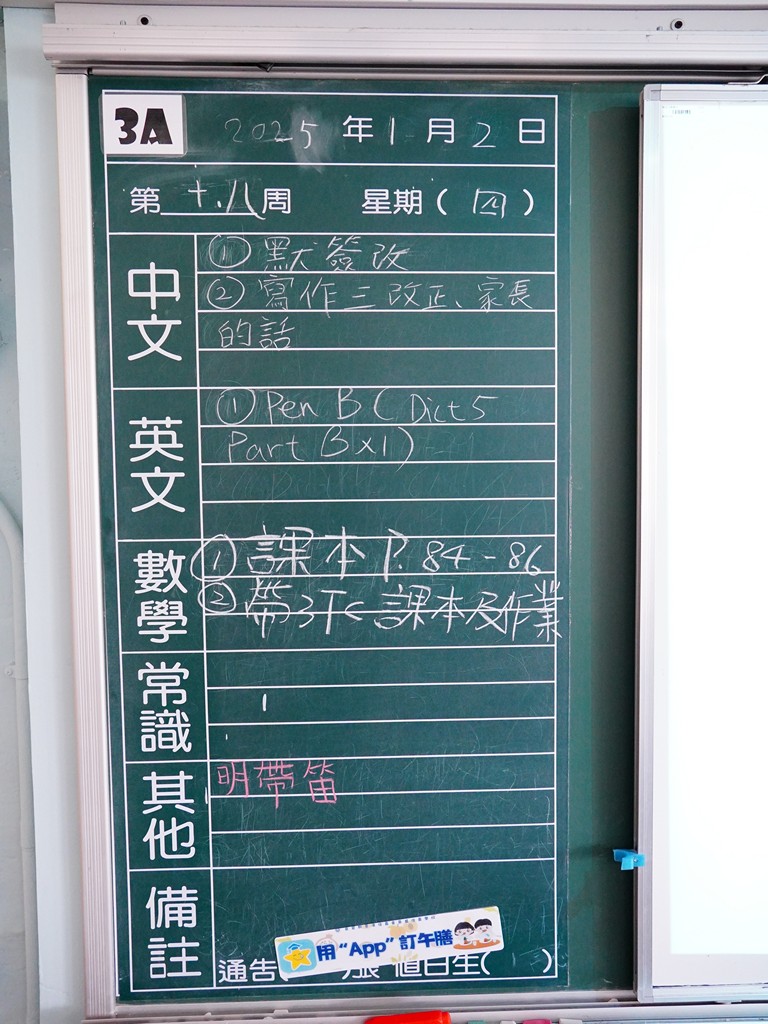 3A
2025年1月2日
第十八周 星期(四)
中文
① 默簽改
② 寫作三改正、家長
的話
英文
① Pen B (Dict 5
Part B x1)
數學
① 課本 P. 84-86
② 帶3下C 課本及作業
常識
其他
明帶笛
備註
用“App”訂午膳
通告( )張 值日生( )